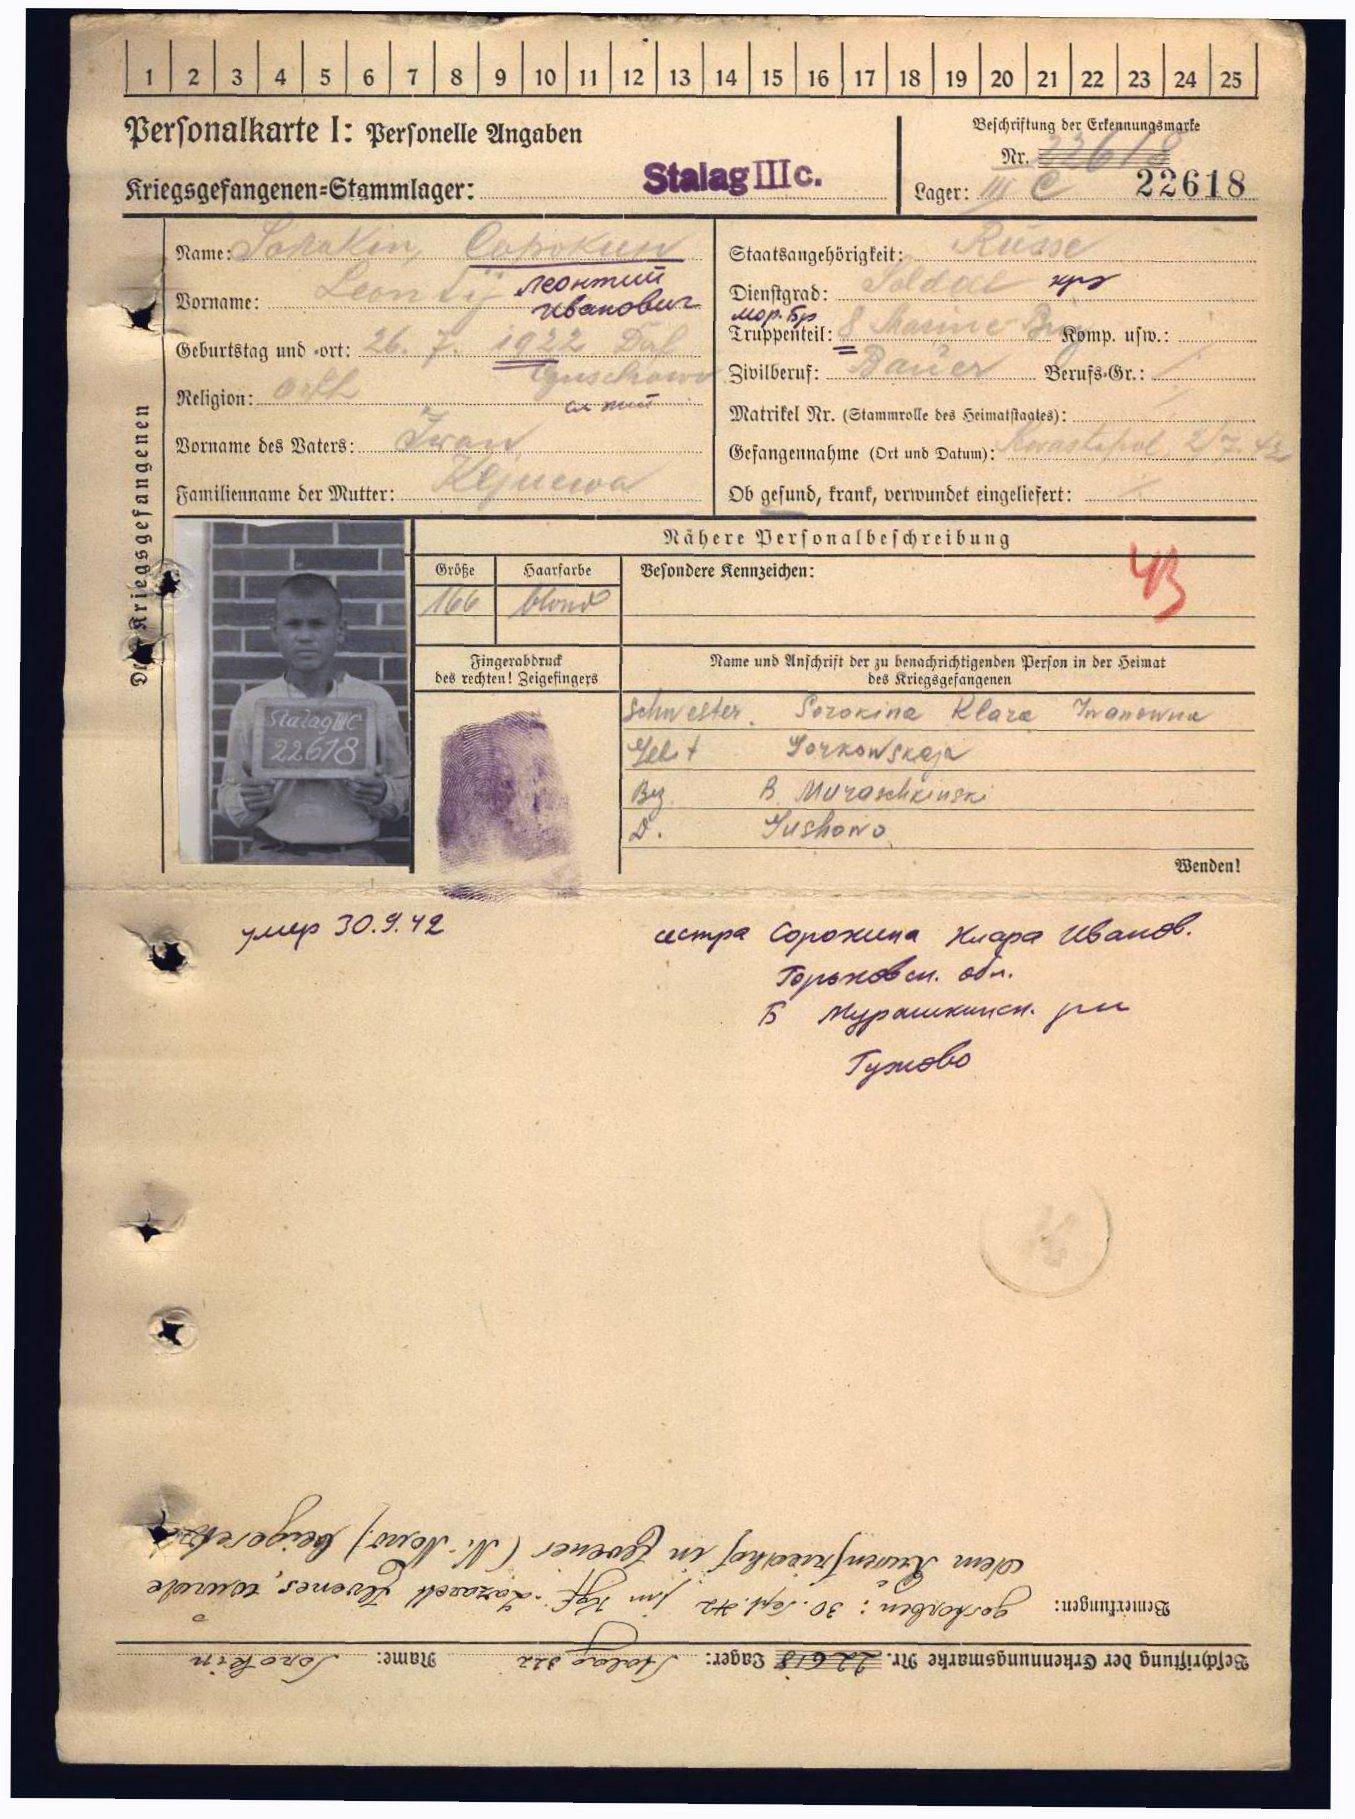 1 2 3 4 5 6 7 8 9 10 11 12 13 14 15 16 17 18 19 20 21 22 23 24 25
Personalkarte I: Personelle Angaben
Kriegsgefangenen=Stammlager: Stalag III c.
Beschriftung der Erkennungsmarke
Nr. 22618
Lager: III C 22618
Des Kriegsgefangenen
Name: Sorokin, Сорокин
Vorname: Leontij Леонтий
Иванович
Geburtstag und =ort: 26. 7. 1922
Religion: orth
Vorname des Vaters: Iwan
Familienname der Mutter:
Staatsangehörigkeit: Russe
Dienstgrad: Soldat кр
мор. бр
Truppenteil: 8 Marine Brig Komp. usw.:
Zivilberuf: Bauer Berufs=Gr.:
Matrikel Nr. (Stammrolle des Heimatstaates):
Gefangennahme (Ort und Datum): 2/7. 42
Ob gesund, krank, verwundet eingeliefert:
Nähere Personalbeschreibung
Größe Haarfarbe Besondere Kennzeichen:
166 blond
Fingerabdruck
des rechten! Zeigefingers
Name und Anschrift der zu benachrichtigenden Person in der Heimat
des Kriegsgefangenen
Stalag III C
22618
Schwester. Sorokina Klara Iwanowna
Gorkowskaja
Bez. B. Muraschkinski
D. Gushowo
Wenden!
умер 30.9.42
сестра Сорокина Клара Иванов.
Горьковск. обл.
Б Мурашкинск. рн
Гужово
Beschriftung der Erkennungsmarke Nr. 22618 Lager: Stalag 322 Name: Sorokin
Bemerkungen: gestorben: 30. Sept. 42 im Kgf.-Lazarett Elvenes, wurde
dem Russenfriedhof in Elvenes (N.-Norw.) beigesetzt